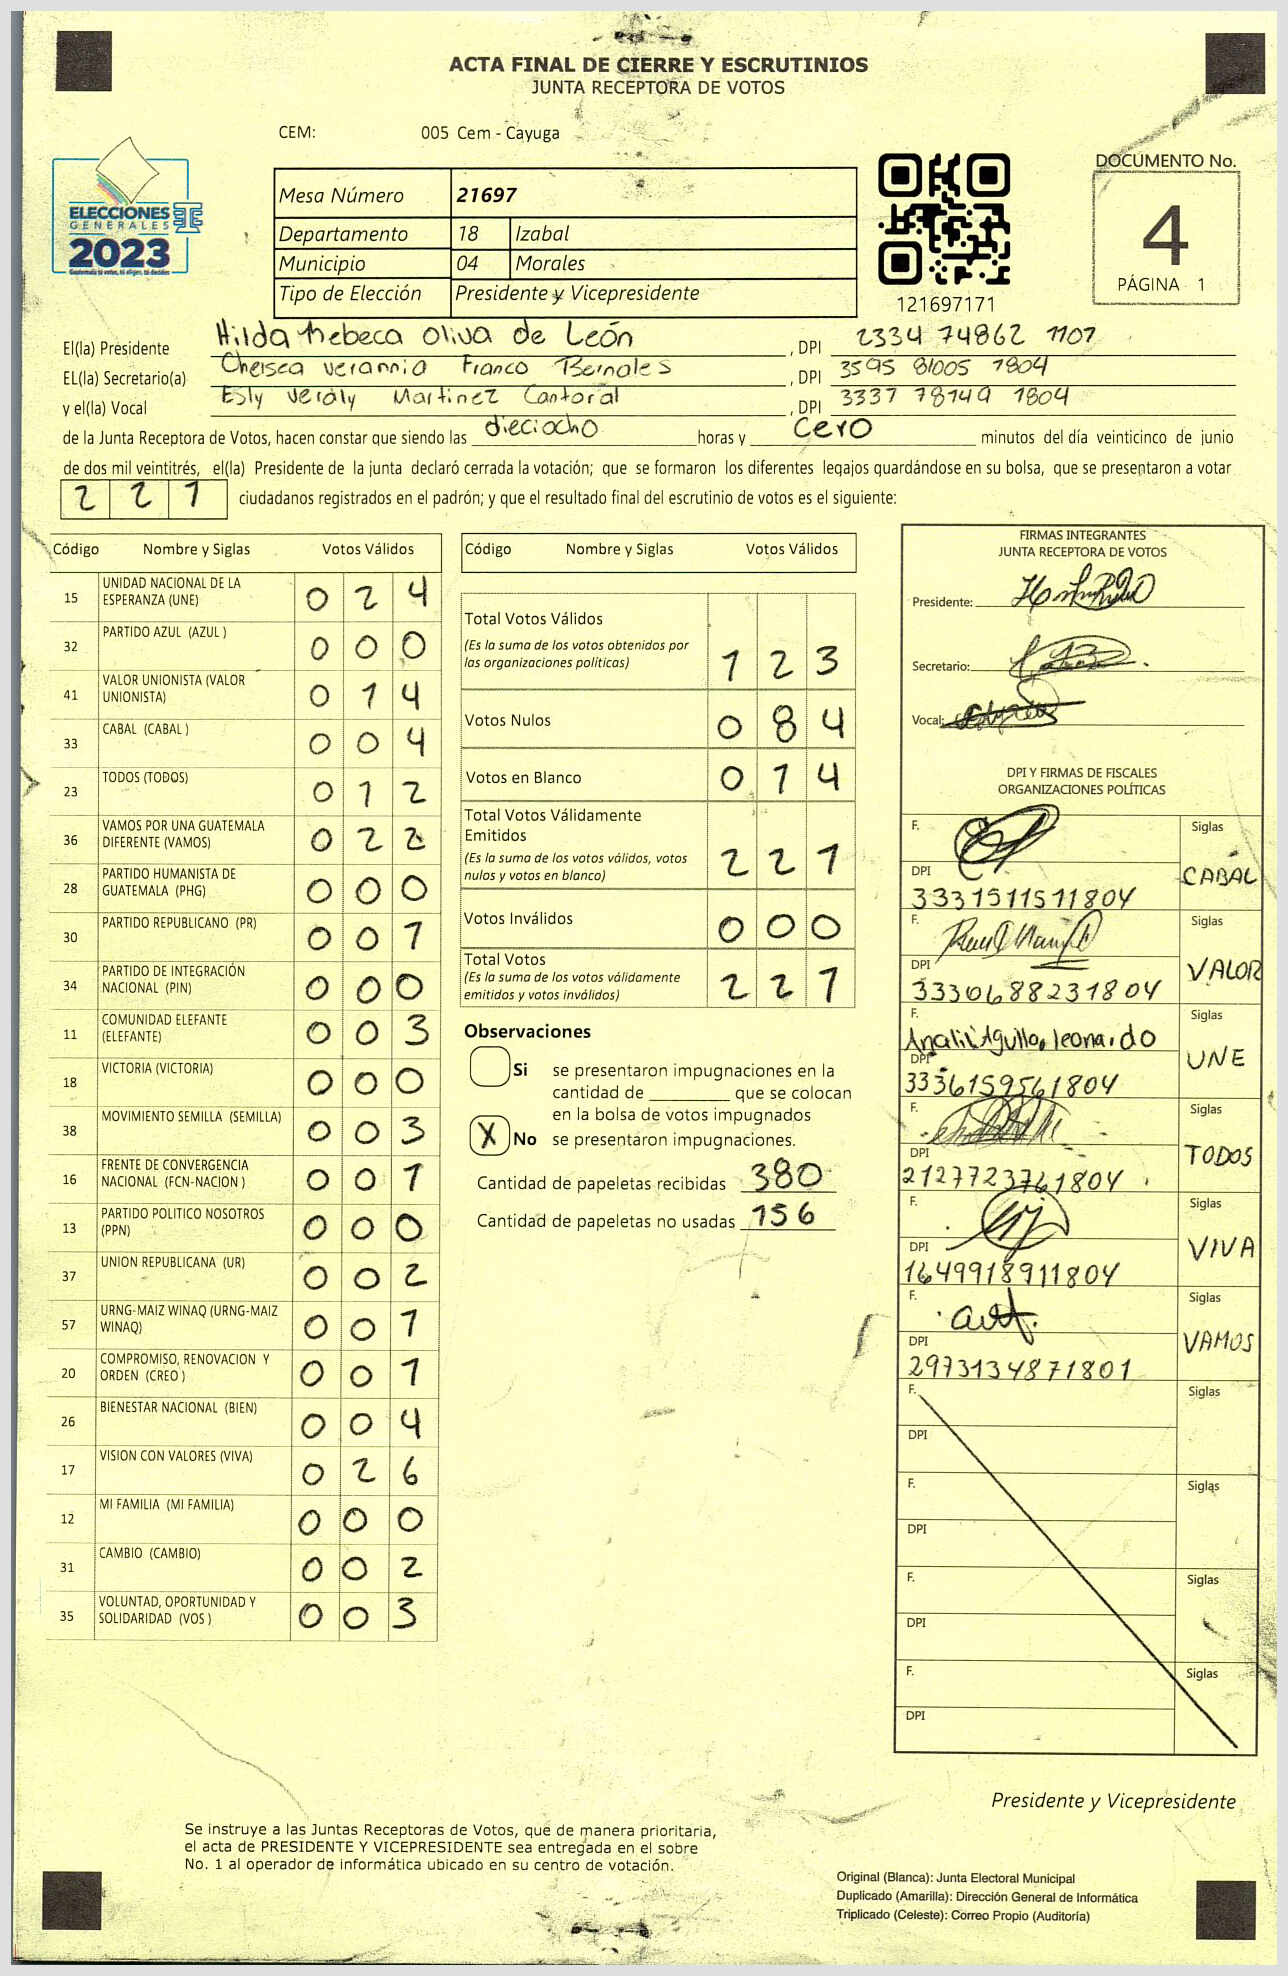 ACTA FINAL DE CIERRE Y ESCRUTINIOS
JUNTA RECEPTORA DE VOTOS
CEM: 005 Cem - Cayuga
ELECCIONES
GENERALES
2023
Guatemala tú votas, tú eliges, tú decides
Mesa Número 21697
Departamento 18 Izabal
Municipio 04 Morales
Tipo de Elección Presidente y Vicepresidente
121697171
DOCUMENTO No.
4
PÁGINA 1
El(la) Presidente Hilda Rebeca Oliva de León , DPI 2334 74862 1107
EL(la) Secretario(a) Chelsea Verannia Franco Bernales , DPI 3595 81005 1804
y el(la) Vocal Esly Veraly Martinez Cantoral , DPI 3337 78149 1804
de la Junta Receptora de Votos, hacen constar que siendo las dieciocho horas y cero minutos del día veinticinco de junio
de dos mil veintitrés, el(la) Presidente de la junta declaró cerrada la votación; que se formaron los diferentes legajos guardándose en su bolsa, que se presentaron a votar
221 ciudadanos registrados en el padrón; y que el resultado final del escrutinio de votos es el siguiente:
Código Nombre y Siglas Votos Válidos
15 UNIDAD NACIONAL DE LA ESPERANZA (UNE) 024
32 PARTIDO AZUL (AZUL ) 000
41 VALOR UNIONISTA (VALOR UNIONISTA) 014
33 CABAL (CABAL ) 004
23 TODOS (TODOS) 012
36 VAMOS POR UNA GUATEMALA DIFERENTE (VAMOS) 022
28 PARTIDO HUMANISTA DE GUATEMALA (PHG) 000
30 PARTIDO REPUBLICANO (PR) 001
34 PARTIDO DE INTEGRACIÓN NACIONAL (PIN) 000
11 COMUNIDAD ELEFANTE (ELEFANTE) 003
18 VICTORIA (VICTORIA) 000
38 MOVIMIENTO SEMILLA (SEMILLA) 003
16 FRENTE DE CONVERGENCIA NACIONAL (FCN-NACION ) 001
13 PARTIDO POLITICO NOSOTROS (PPN) 000
37 UNION REPUBLICANA (UR) 002
57 URNG-MAIZ WINAQ (URNG-MAIZ WINAQ) 001
20 COMPROMISO, RENOVACION Y ORDEN (CREO ) 001
26 BIENESTAR NACIONAL (BIEN) 004
17 VISION CON VALORES (VIVA) 026
12 MI FAMILIA (MI FAMILIA) 000
31 CAMBIO (CAMBIO) 002
35 VOLUNTAD, OPORTUNIDAD Y SOLIDARIDAD (VOS ) 003
Código Nombre y Siglas Votos Válidos
Total Votos Válidos
(Es la suma de los votos obtenidos por
las organizaciones políticas) 123
Votos Nulos 084
Votos en Blanco 014
Total Votos Válidamente
Emitidos
(Es la suma de los votos válidos, votos
nulos y votos en blanco) 221
Votos Inválidos 000
Total Votos
(Es la suma de los votos válidamente
emitidos y votos inválidos) 221
Observaciones
Si se presentaron impugnaciones en la
cantidad de ________ que se colocan
en la bolsa de votos impugnados
X No se presentaron impugnaciones.
Cantidad de papeletas recibidas 380
Cantidad de papeletas no usadas 156
FIRMAS INTEGRANTES
JUNTA RECEPTORA DE VOTOS
Presidente:
Secretario:
Vocal:
DPI Y FIRMAS DE FISCALES
ORGANIZACIONES POLÍTICAS
F. Siglas
CABAL
DPI
3331511511804
F. Siglas
VALOR
DPI
3330688231804
F. Siglas
UNE
DPI
3336159561804
F. Siglas
TODOS
DPI
2127723761804
F. Siglas
VIVA
DPI
1649918911804
F. Siglas
VAMOS
DPI
2973134871801
F. Siglas
DPI
F. Siglas
DPI
F. Siglas
DPI
F. Siglas
DPI
Presidente y Vicepresidente
Se instruye a las Juntas Receptoras de Votos, que de manera prioritaria,
el acta de PRESIDENTE Y VICEPRESIDENTE sea entregada en el sobre
No. 1 al operador de informática ubicado en su centro de votación.
Original (Blanca): Junta Electoral Municipal
Duplicado (Amarilla): Dirección General de Informática
Triplicado (Celeste): Correo Propio (Auditoría)